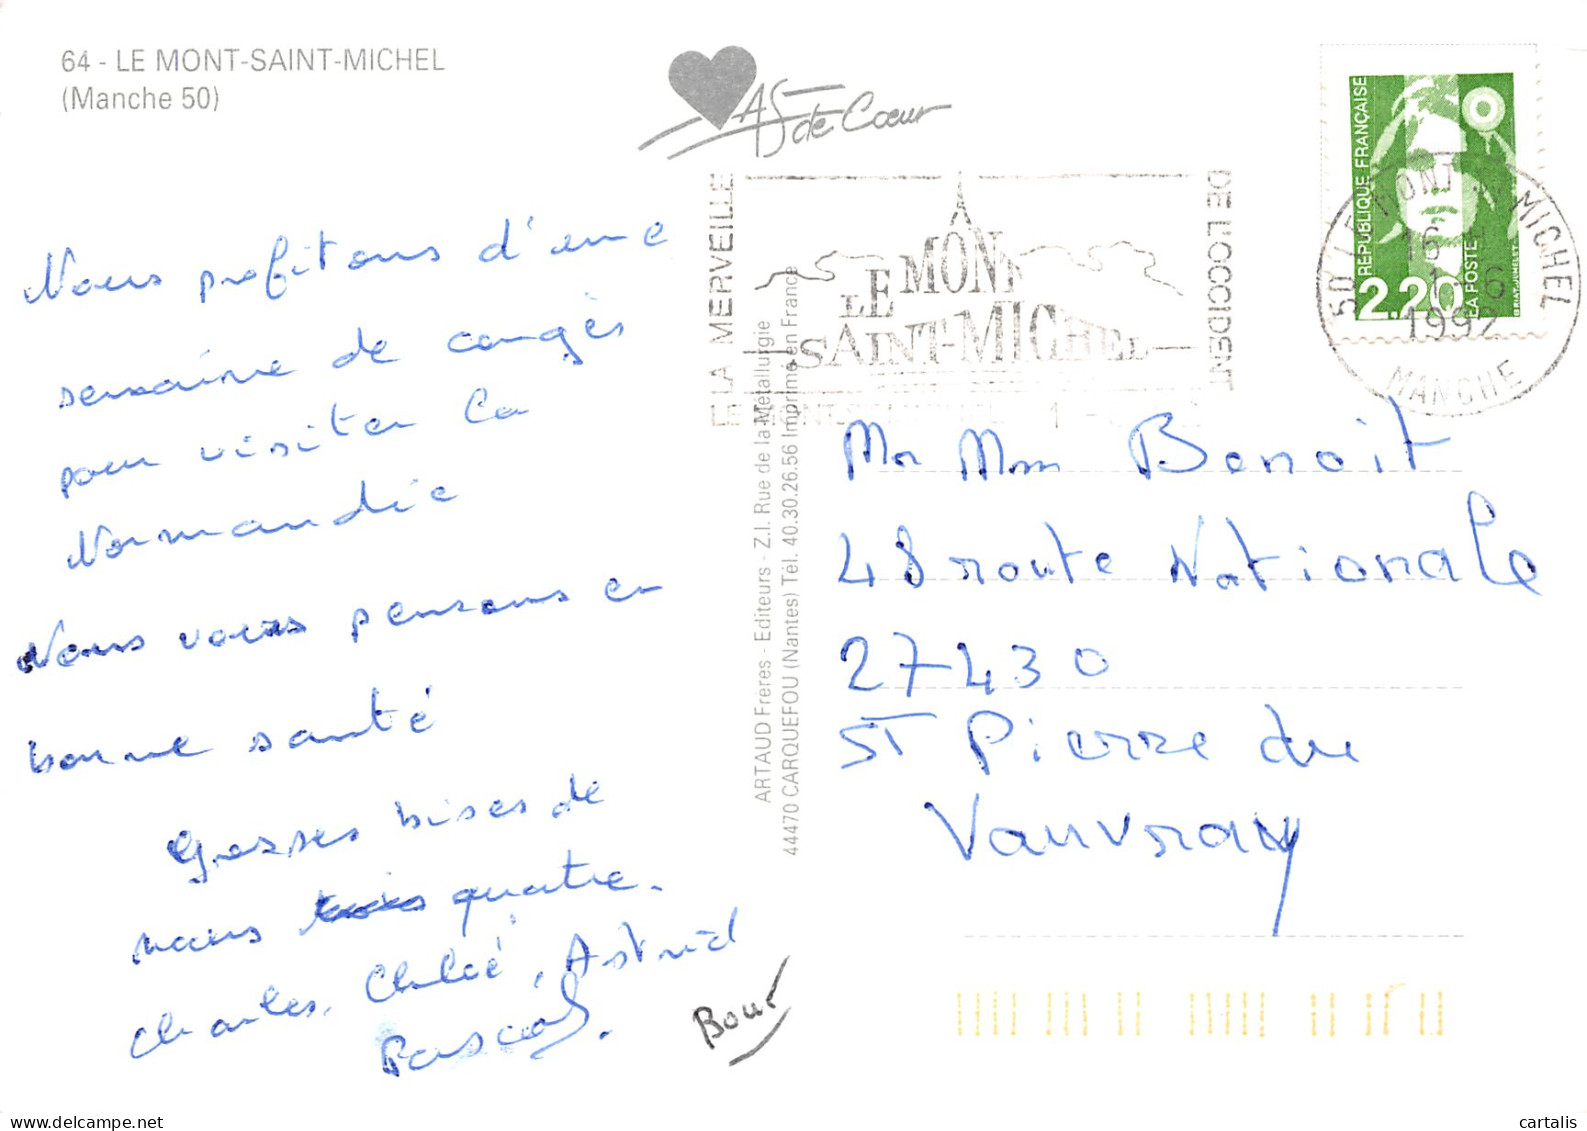 64 - LE MONT-SAINT-MICHEL
(Manche 50)
As de Coeur
LA MERVEILLE
DE L'OCCIDENT
LE MONT
SAINT-MICHEL
REPUBLIQUE FRANÇAISE
2.20
LA POSTE
BRIAT-JUMELET
50 LE MONT ST MICHEL
16 H
1 - 6
1992
MANCHE
Nous profitons d'une
semaine de congés
pour visiter la
Normandie
Nous vous pensons en
bonne santé
Grosses bises de
nous quatre.
Charles, Chloé, Astrid
Pascal.
Bour
ARTAUD Frères - Editeurs - Z.I. Rue de la Métallurgie
44470 CARQUEFOU (Nantes) Tél. 40.30.26.56 Imprimé en France
Mr Mm Benoit
48 route Nationale
27430
ST Pierre du
Vauvray
cartalis